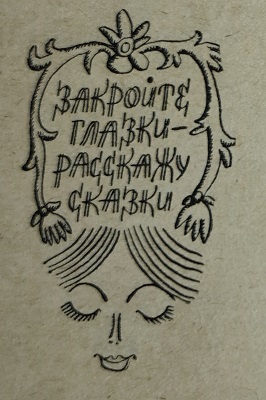 ЗАКРОЙТЕ
ГЛАЗКИ-
РАССКАЖУ
СКАЗКИ